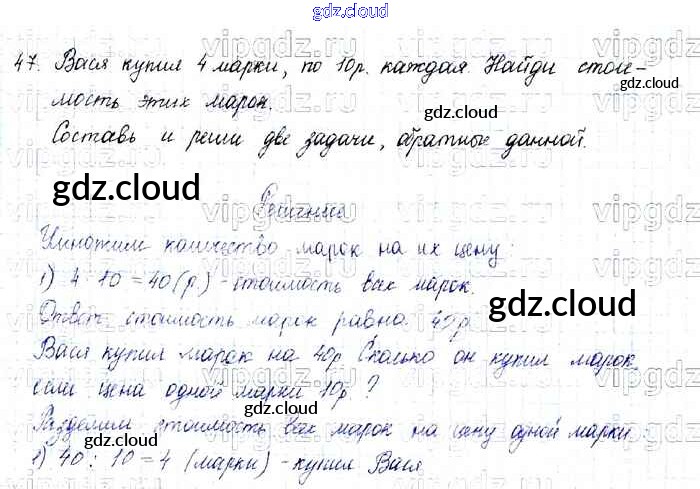 gdz.cloud
47. Вася купил 4 марки, по 10р. каждая. Найди стои-
мость этих марок.
Составь и реши две задачи, обратные данной.
gdz.cloud
gdz.cloud
gdz.cloud
Решение
Умножим количество марок на их цену:
1) 4 · 10 = 40 (р.) - стоимость всех марок.
gdz.cloud
Ответ: стоимость марок равна 40р.
Вася купил марок на 40р. Сколько он купил марок,
если цена одной марки 10р?
gdz.cloud
Разделим стоимость всех марок на цену одной марки
gdz.cloud
1) 40 : 10 = 4 (марки) - купил Вася
gdz.cloud